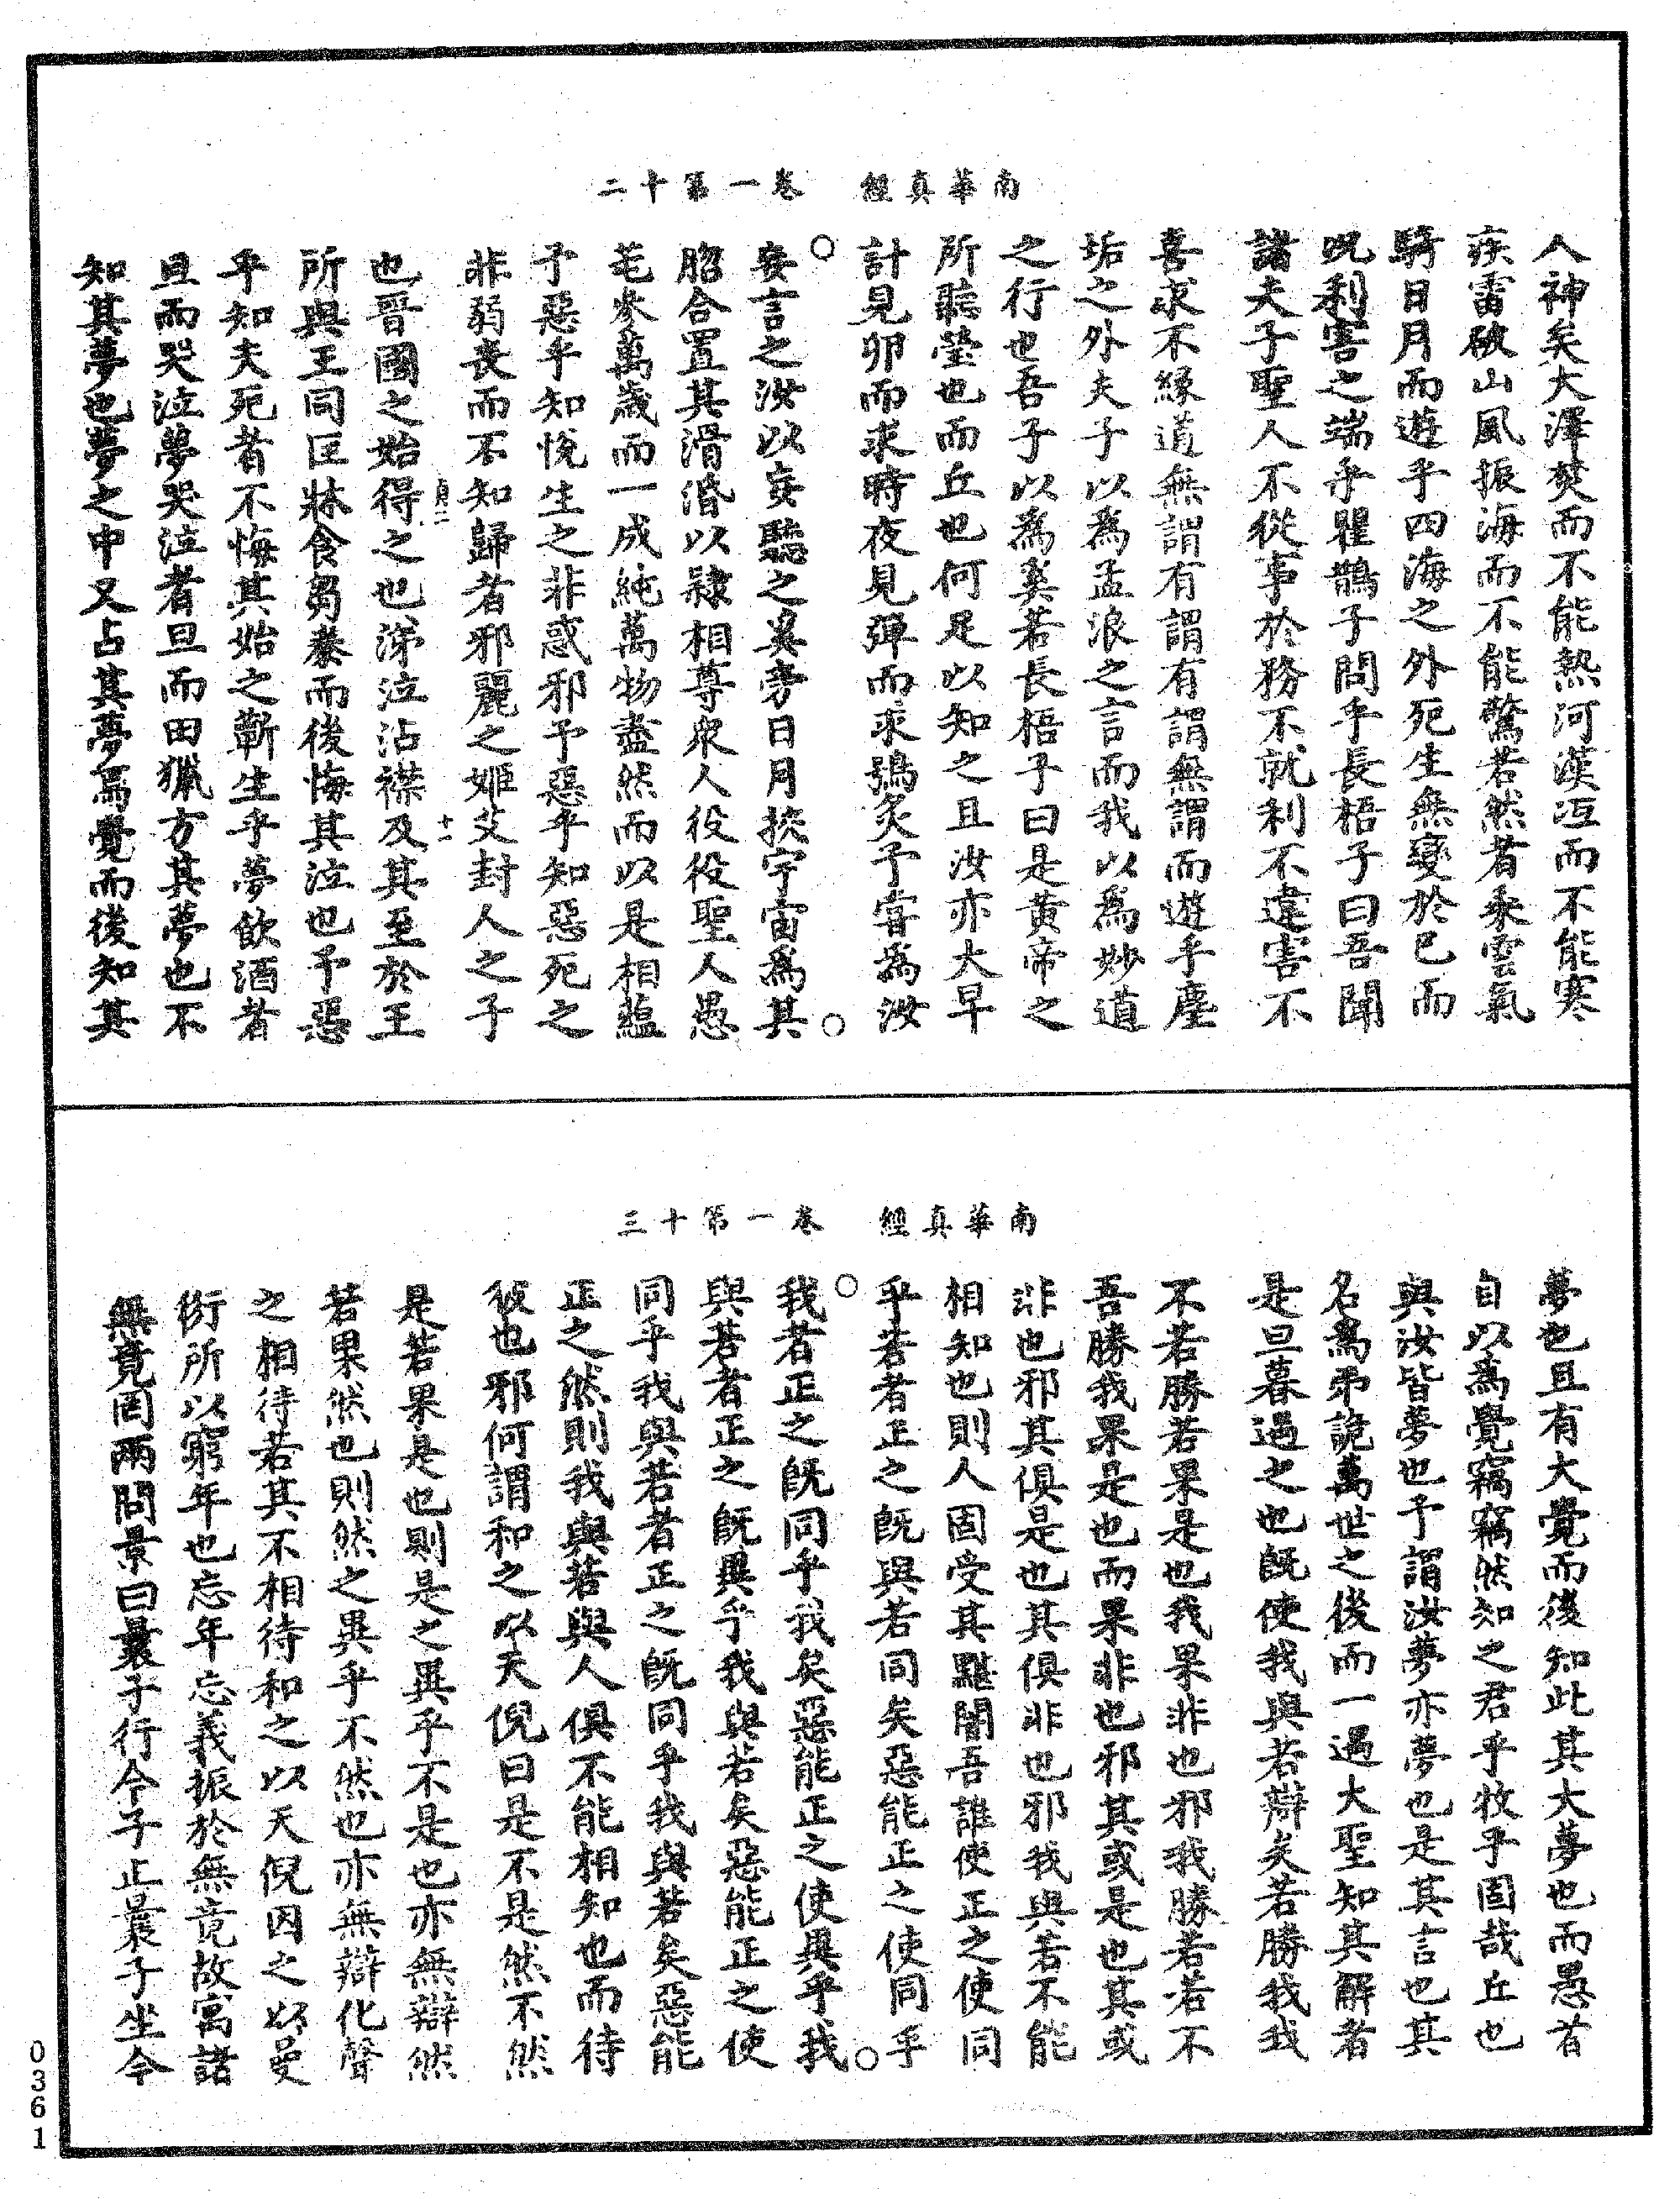 南華真經　卷一第十二
人神矣大澤焚而不能熱河漢冱而不能寒
疾雷破山風振海而不能驚若然者乘雲氣
騎日月而遊乎四海之外死生無變於已而
況利害之端乎瞿鵲子問乎長梧子曰吾聞
諸夫子聖人不從事於務不就利不違害不
喜求不緣道無謂有謂有謂無謂而遊乎塵
垢之外夫子以爲孟浪之言而我以爲妙道
之行也吾子以爲奚若長梧子曰是黃帝之
所聽瑩也而丘也何足以知之且汝亦大早
計見卵而求時夜見彈而求鴞炙予嘗爲汝
妄言之汝以妄聽之奚旁日月挾宇宙爲其
脗合置其滑涽以隸相尊衆人役役聖人愚
芚參萬歲而一成純萬物盡然而以是相蘊
予惡乎知悅生之非惑邪予惡乎知惡死之
非弱喪而不知歸者邪麗之姬艾封人之子
也晉國之始得之也涕泣沾襟及其至於王
所與王同匡牀食芻豢而後悔其泣也予惡
乎知夫死者不悔其始之蘄生乎夢飲酒者
旦而哭泣夢哭泣者旦而田獵方其夢也不
知其夢也夢之中又占其夢焉覺而後知其
南華真經　卷一第十三
夢也且有大覺而後知此其大夢也而愚者
自以爲覺竊竊然知之君乎牧乎固哉丘也
與汝皆夢也予謂汝夢亦夢也是其言也其
名爲弔詭萬世之後而一遇大聖知其解者
是旦暮遇之也旣使我與若辯矣若勝我我
不若勝若果是也我果非也邪我勝若若不
吾勝我果是也而果非也邪其或是也其或
非也邪其俱是也其俱非也邪我與若不能
相知也則人固受其黮闇吾誰使正之使同
乎若者正之旣與若同矣惡能正之使同乎
我者正之旣同乎我矣惡能正之使異乎我
與若者正之旣異乎我與若矣惡能正之使
同乎我與若者正之旣同乎我與若矣惡能
正之然則我與若與人俱不能相知也而待
彼也邪何謂和之以天倪曰是不是然不然
是若果是也則是之異乎不是也亦無辯然
若果然也則然之異乎不然也亦無辯化聲
之相待若其不相待和之以天倪因之以曼
衍所以窮年也忘年忘義振於無竟故寓諸
無竟罔兩問景曰曩子行今子止曩子坐今
0361